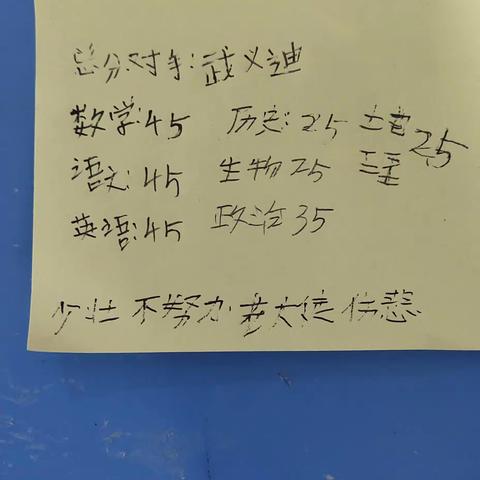 总分对手:武义迪
数学:45 历史:25
语文:45 生物25 25
英语:45 政治35
少壮不努力老大徒伤悲